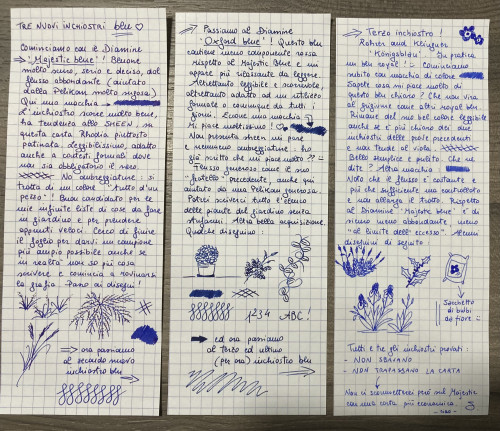 TRE NUOVI INCHIOSTRI blu ♡
Cominciamo con il Diamine
→ "Majestic blue"! Bluone
molto vivo, serio e deciso, dal
flusso abbondante (aiutato
dalla Pelikan molto umida).
Qui una macchia →
L'inchiostro scorre molto bene,
ha tendenza allo SHEEN, su
questa carta Rhodia piuttosto
patinata. Leggibilissimo, adatto
anche a contesti formali dove
sia obbligatorio il nero.
No ombreggiature: si
tratta di un colore "tutto d'un
pezzo". Buon candidato per le
mie infinite liste di cose da fare
in giardino e per prendere
appunti veloci. Cerco di finire
il foglio per darvi un campione
più ampio possibile anche se
in realtà non so più cosa
scrivere e comincio a rovinarmi
la grafia. Passo ai disegni!
→ ora passiamo
al secondo nuovo
inchiostro blu →
Passiamo al Diamine
"Oxford blue"! Questo blu
contiene una componente rossa
rispetto al Majestic Blue e un
appare più rilassante da leggere.
Altrettanto leggibile e scorrevole,
altrettanto adatto ad un utilizzo
formale o comunque da tutti i
giorni. Ecco una macchia →
Mi piace moltissimo!
Non presenta sheen mi pare
e nemmeno ombreggiature: ho
già scritto che mi piace molto??
Flusso generoso come il suo
"fratello" precedente anche qui
aiutato da una Pelikan generosa.
Potrei scriverci tutto l'elenco
delle piante del giardino senza
stufarmi. Altra bella acquisizione.
Qualche disegnino:
1234 ABC!
→ ed ora passiamo
al terzo ed ultimo
(per ora) inchiostro blu →
→ Terzo inchiostro!
Rohrer and Klingner
"Königsblau". In pratica
un blu royal! → Cominciamo
subito con macchia di colore
Sapete cosa mi piace molto di
questo blu chiaro? Che non vira
al grigione come altri royal blu.
Rimane del suo bel colore leggibile
anche se è più chiaro dei due
inchiostri delle prove precedenti
e non tende al viola.
Bello semplice e pulito. Che ne
dite? Altra macchia →
Noto che il flusso è costante e
più che sufficiente ma controllato
e non allarga il tratto. Rispetto
al Diamine "Majestic blue" è di
sicuro meno abbondante, uno
"al limite dell'eccesso". Alcuni
disegnini di seguito:
Sacchetto
di bulbi
da fiore
Tutti e tre gli inchiostri provati:
- NON SBAVANO
- NON TRAPASSANO LA CARTA
Non ci scommetterei però sul Majestic
con una carta più economica.